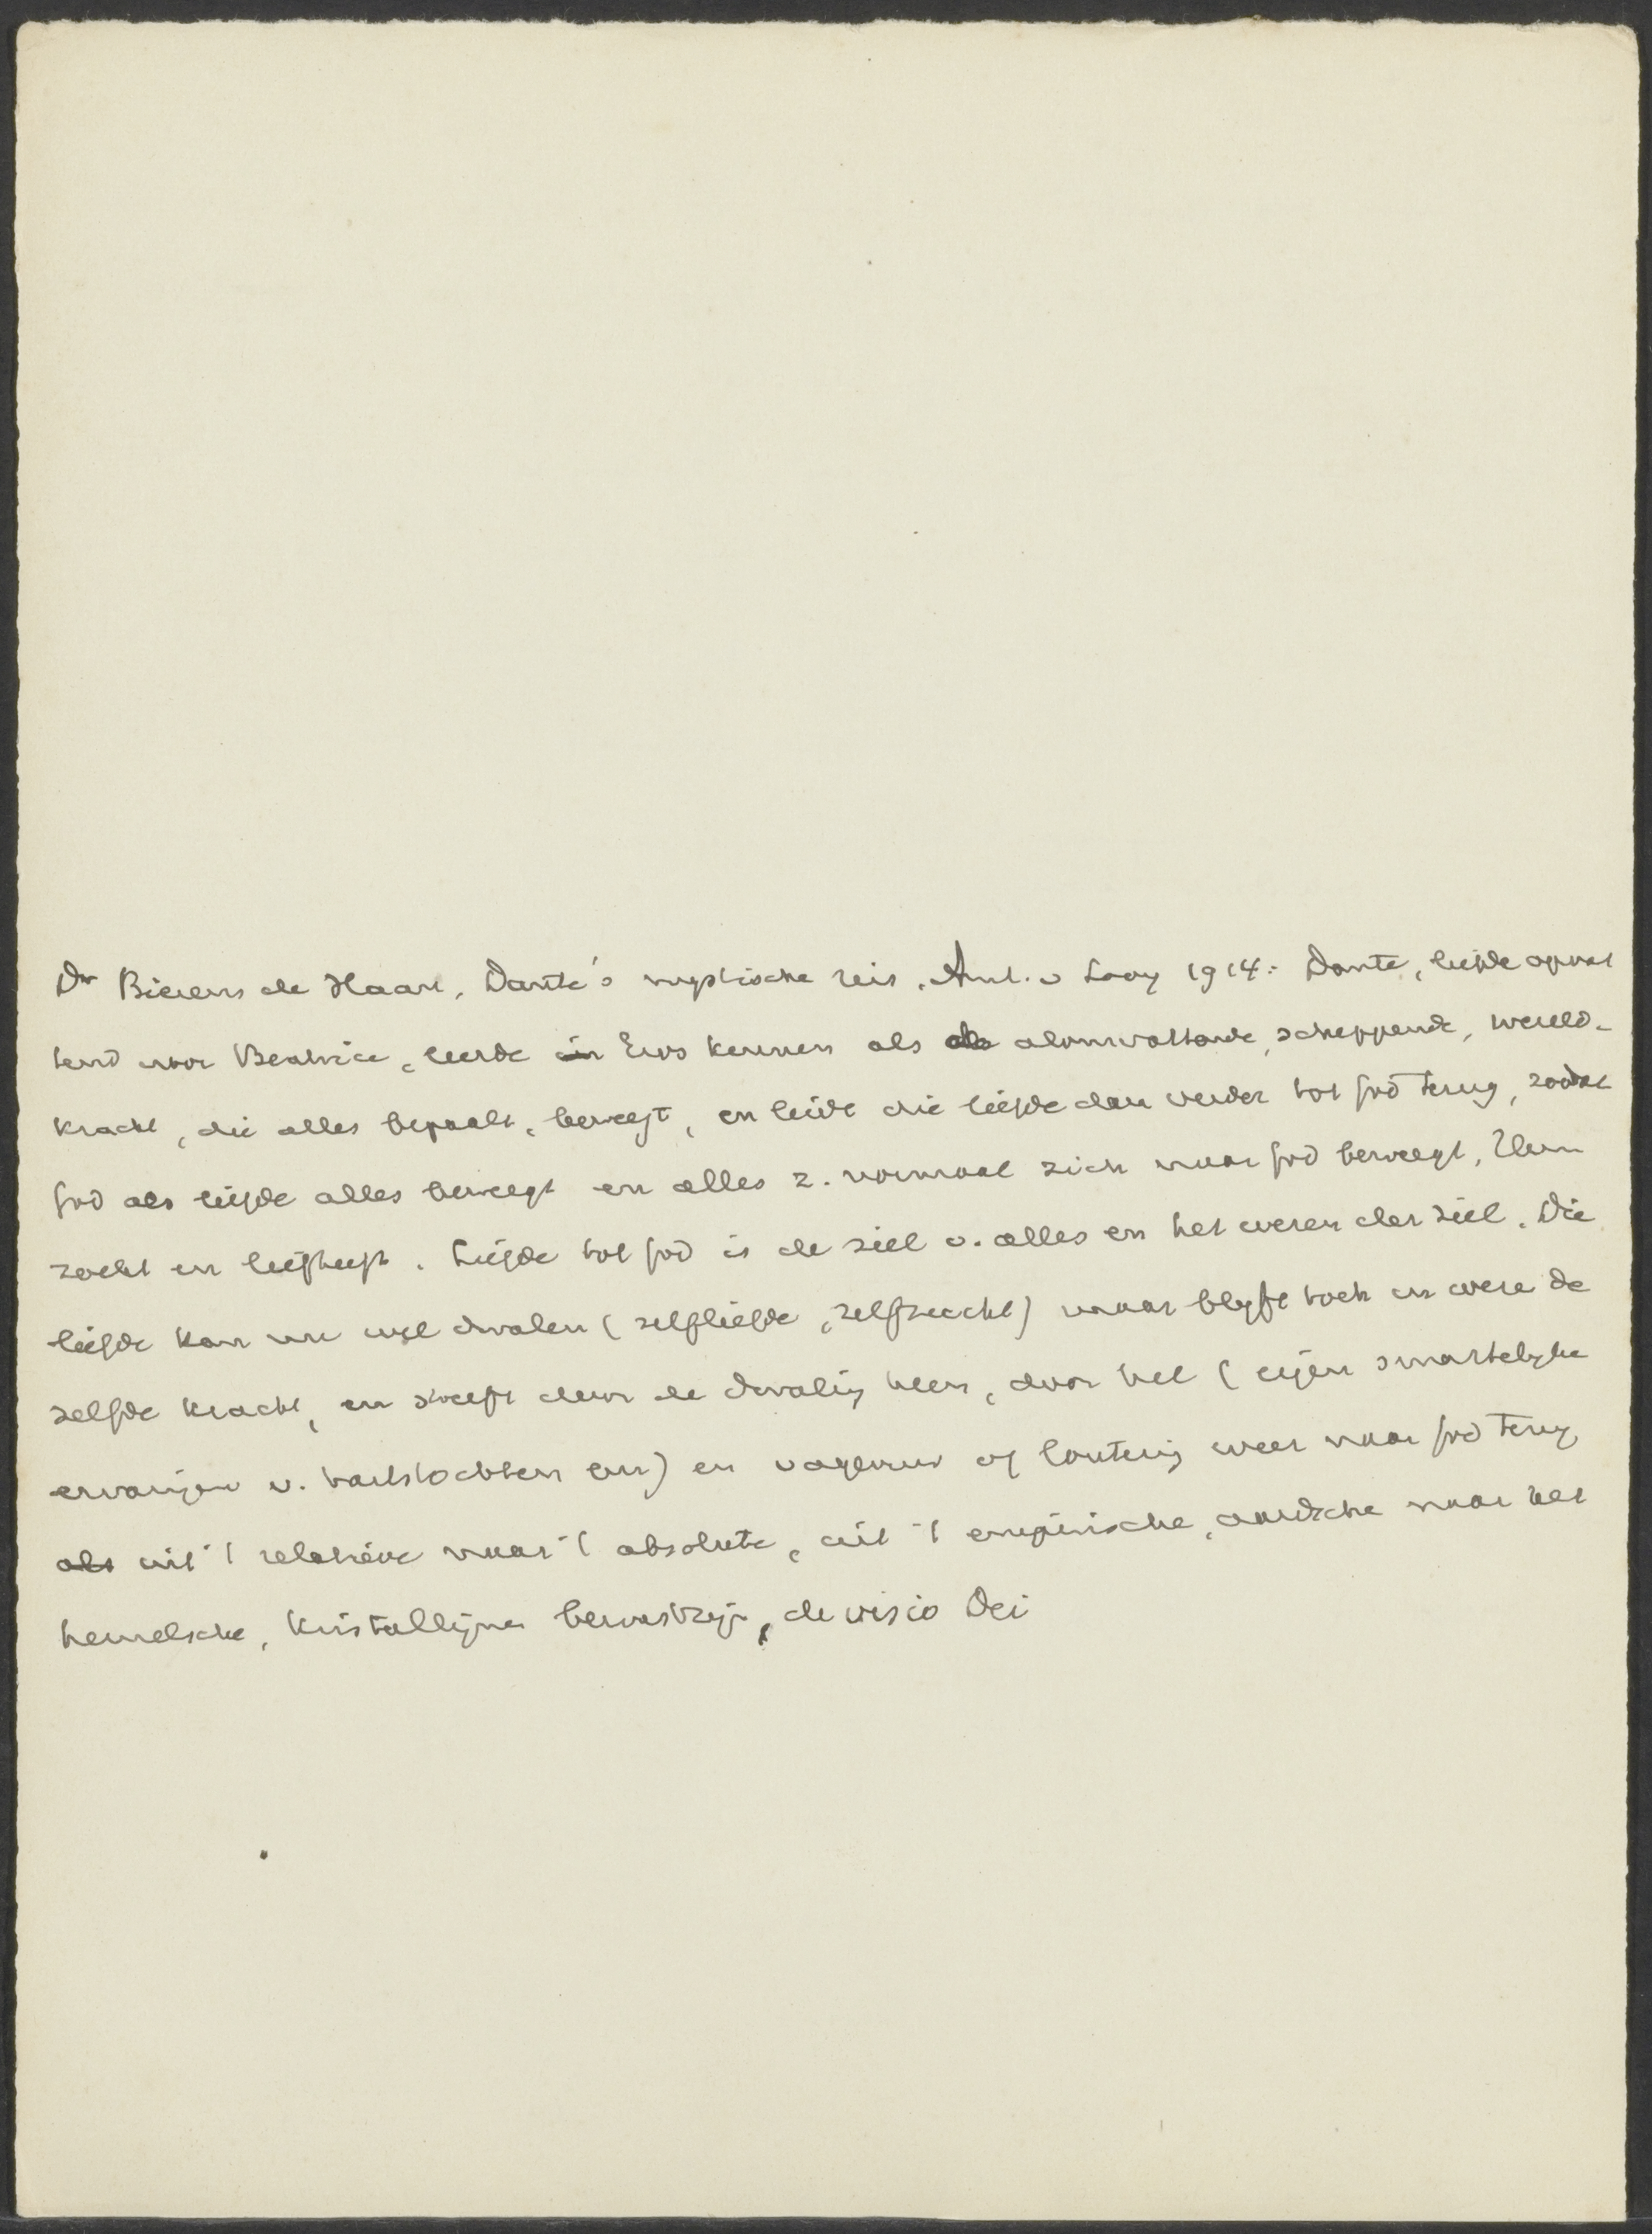 Dr Bierens de Haan, Dante's mystische reis, Amst. v Looy 1914: Dante, liefde opvat
tend voor Beatrice, leerde in Eros kennen als als alomvattende, scheppende, wereld-
kracht, die alles bepaalt, beweegt, en leidt die liefde dan verder tot God terug, zoodat
God als liefde alles beweegt en alles z. normaal zich naar God beweegt, Hem
zoekt en liefheeft. Liefde tot God is de ziel v. alles en het wezen der ziel. Die
liefde kan nu wel dwalen (zelfliefde, zelfzucht) maar blijft toch in wezen de
zelfde kracht, en streeft door de dwaling heen, door hel (eigen smartelijke
ervaringen v. hartstochten enz) en vagevuur of loutering weer naar God terug
als uit 't relatieve naar 't absolute, uit 't empirische, aardsche naar het
hemelsche, kristallijne bewustzijn, de visio Dei